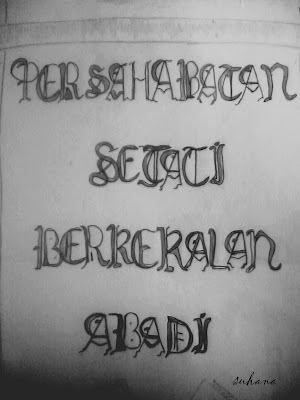 PERSAHABATAN
SEJATI
BERKEKALAN
ABADI
suhana